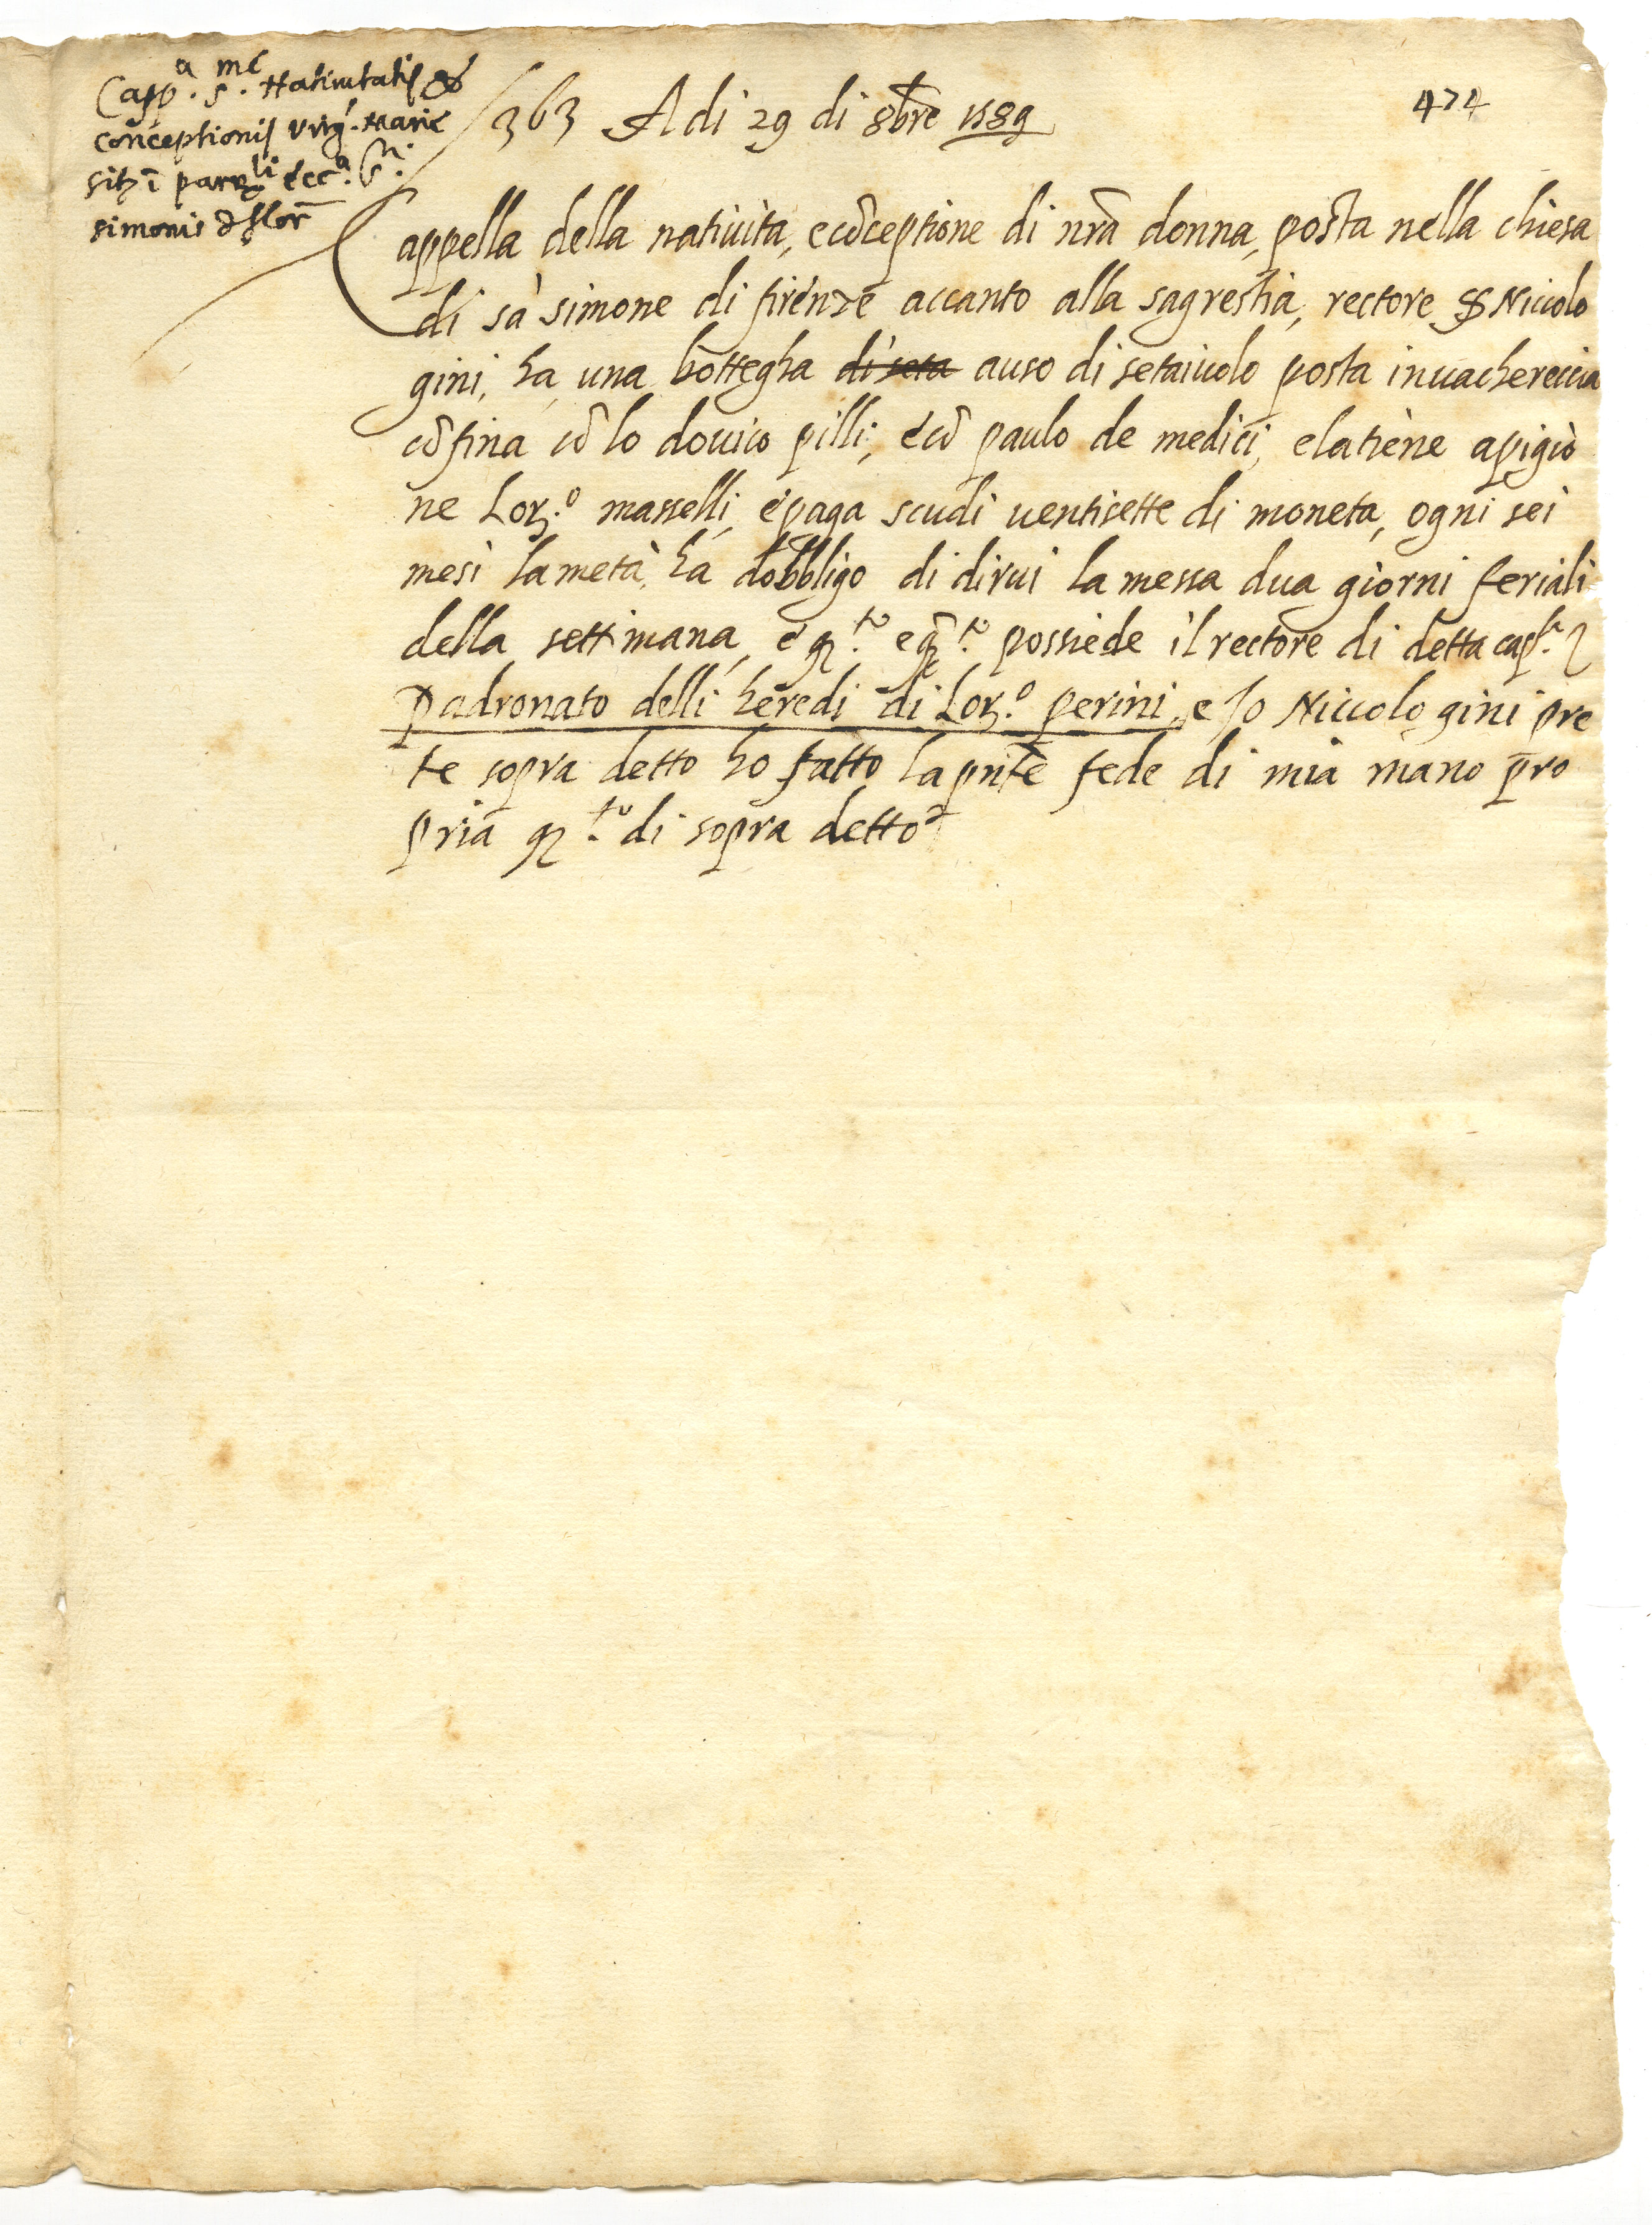 Capp.a S.me Nativitatis et
conceptionis Virg. Marie
sitz ĩ parr.li ecc.a S.ti
simonis de flor̃
363 A di 29 di 8bre 1589
474
Cappella della natiuita, e cõceptione di nr̃a donna, posta nella chiesa
di sã simone di firenze accanto alla sagrestia, rectore S Niccolo
gini, ha una bottegha di seta auso di setaiuolo posta in uachereccia
cõfina cõ lo douico pilli, e cõ paulo de medici, e la tiene apigiò
ne Lorz.o masselli, e paga scudi uentisette di moneta, ogni sei
mesi la metà, ha dobbligo di dirui la messa dua giorni feriali
della settimana, e q.to e q̃.to possiede il rectore di detta cap.la
Padronato delli heredi di Lorz.o perini, e Io Niccolo gini pre
te sopra detto ho fatto la pnt̃e fede di mia mano pro
pria q.to di sopra detto